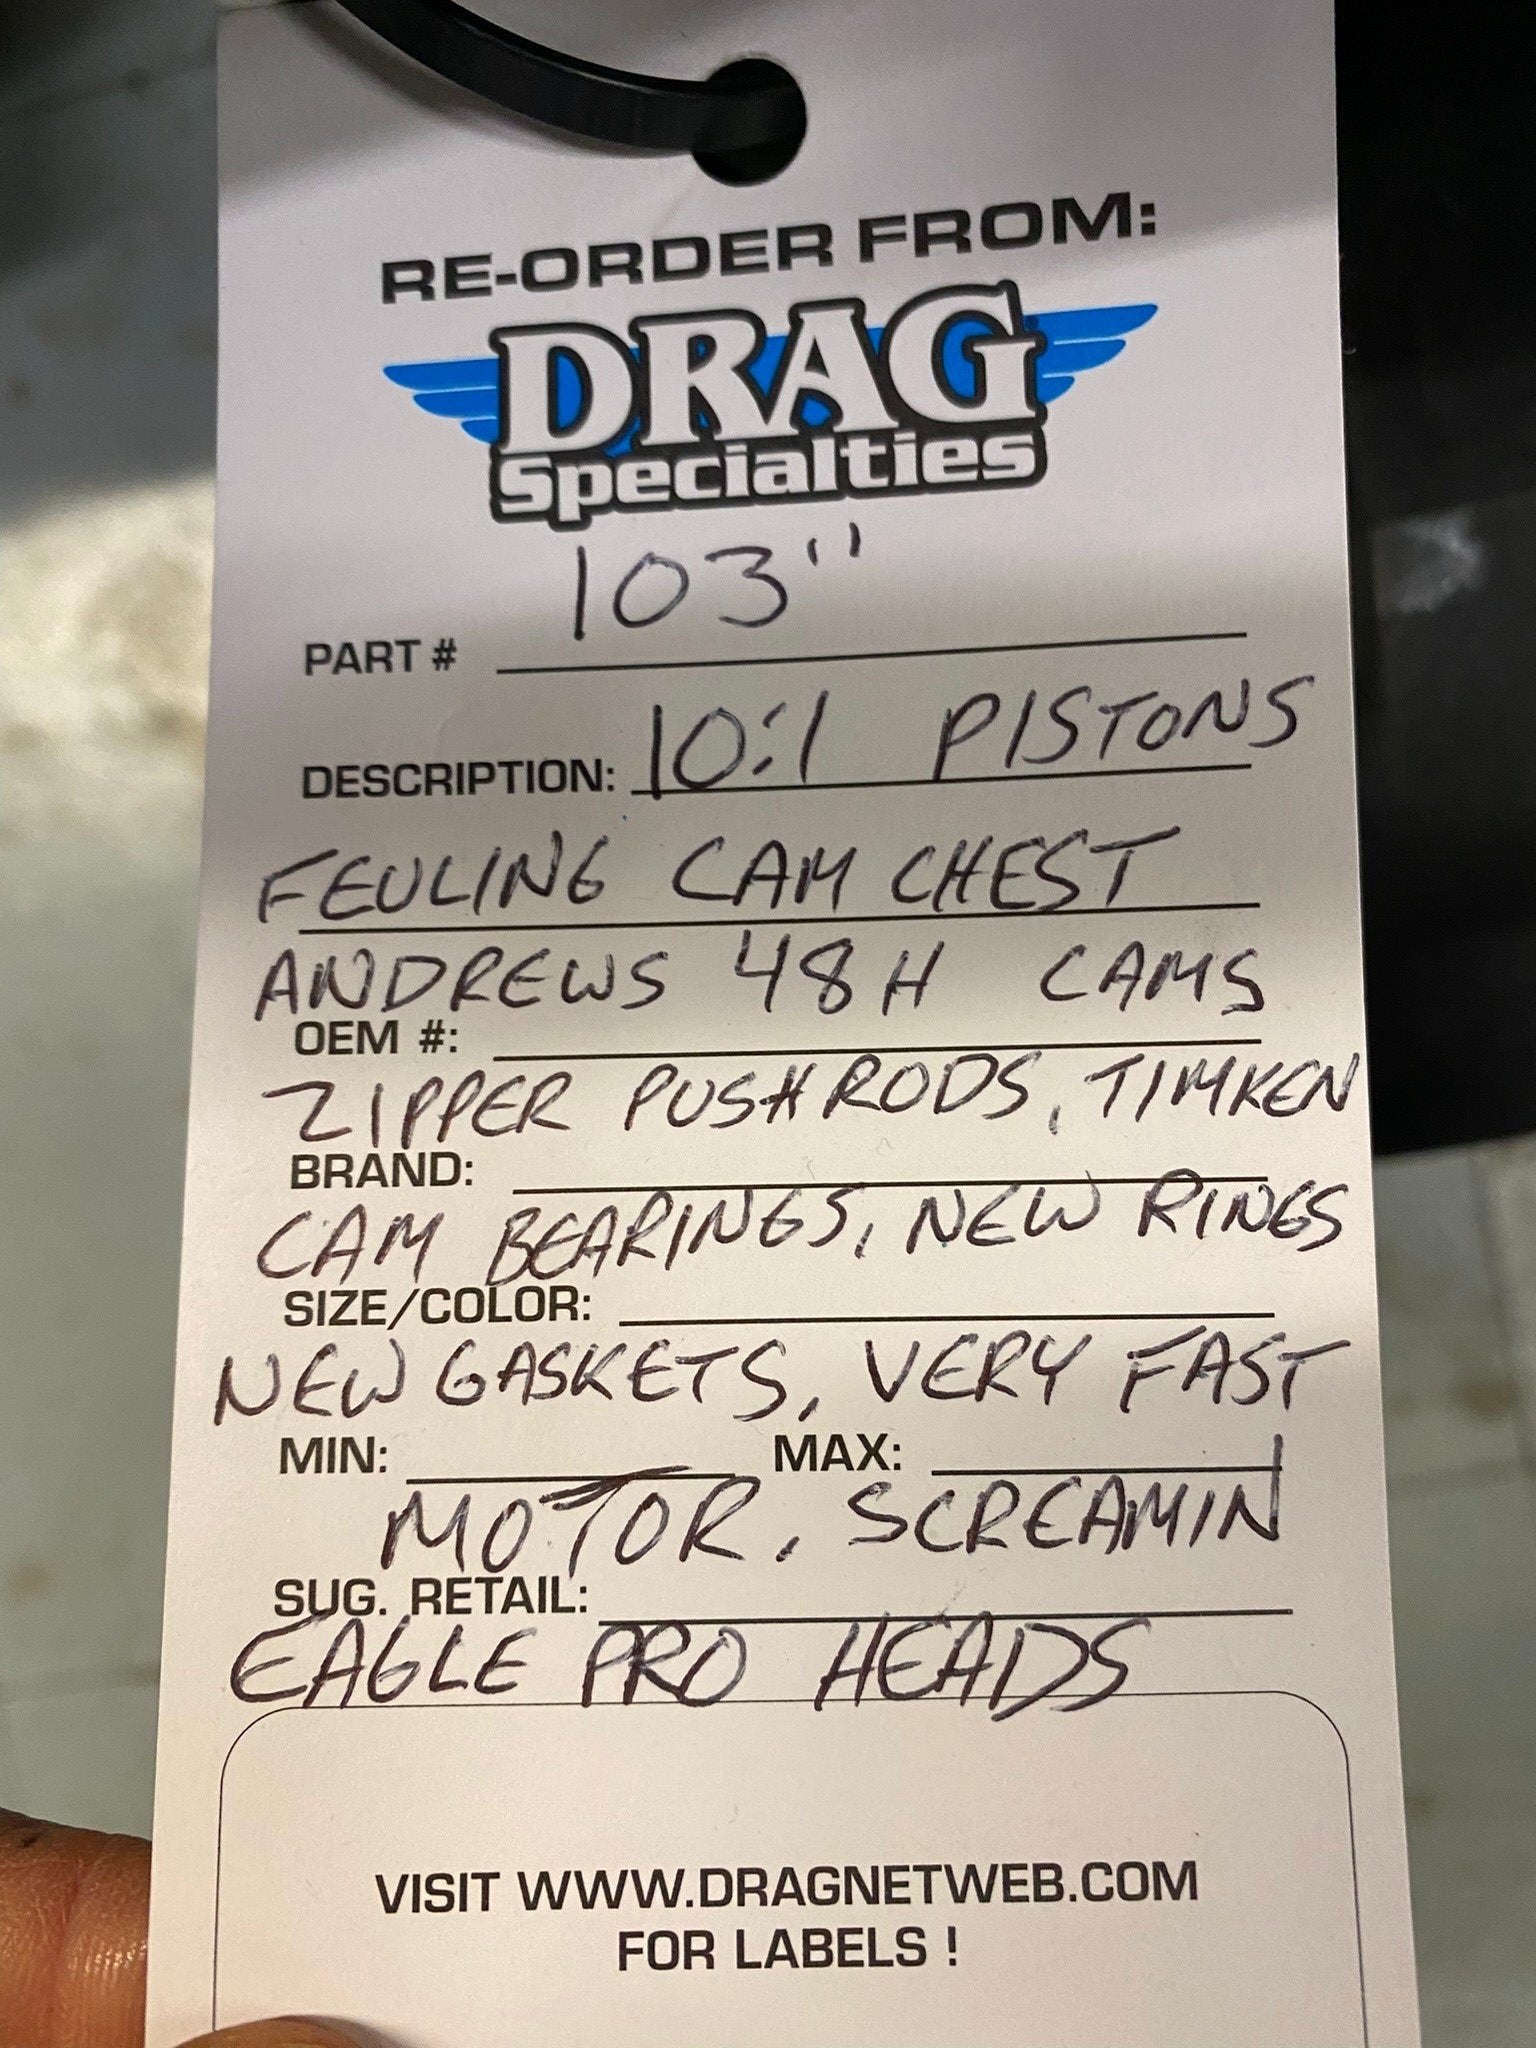 RE-ORDER FROM:
DRAG
Specialties
103"
PART #
DESCRIPTION: 10:1 PISTONS
FEULING CAM CHEST
ANDREWS 48H CAMS
OEM #:
ZIPPER PUSHRODS, TIMKEN
BRAND:
CAM BEARINGS, NEW RINGS
SIZE/COLOR:
NEW GASKETS, VERY FAST
MIN: MAX:
MOTOR, SCREAMIN
SUG. RETAIL:
EAGLE PRO HEADS
VISIT WWW.DRAGNETWEB.COM
FOR LABELS !